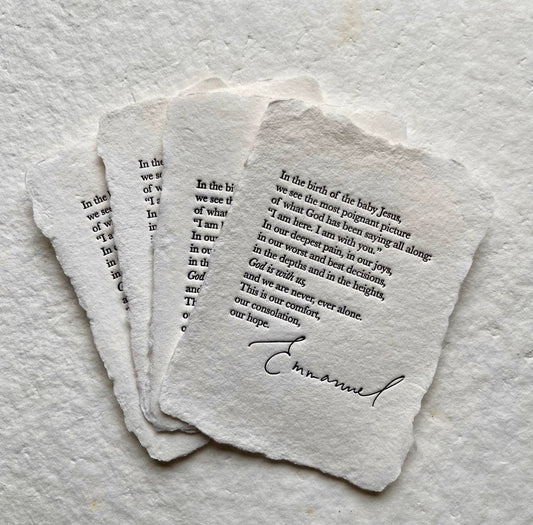 In the
we se
of wh
"I a
In ou
in o
in the
In the
we so
of w
"I a
In the bi
we see th
of what
"I am h
In our
in our
in the
God
and
This
our
our
In the birth of the baby Jesus,
we see the most poignant picture
of what God has been saying all along:
"I am here. I am with you."
In our deepest pain, in our joys,
in our worst and best decisions,
in the depths and in the heights,
God is with us,
and we are never, ever alone.
This is our comfort,
our consolation,
our hope.
Emmanuel